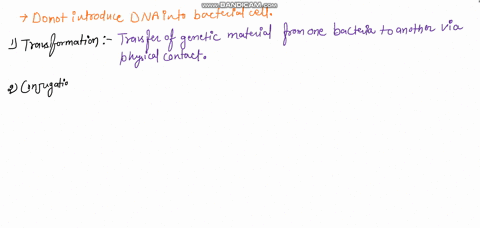 www.BANDICAM.com
→ Donot introduce DNA into bacterial cell.
1) Transformation:- Transfer of genetic material from one bacteria to another via
physical contact.
2) Conjugatio